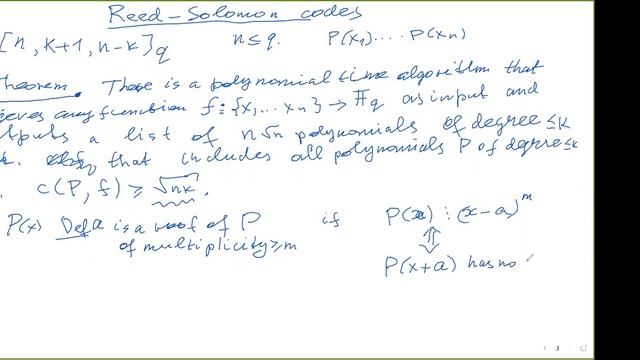 Reed-Solomon codes
[n, k+1, n-k]q n ≤ q. P(x1) .... P(xn)
Theorem. There is a polynomial time algorithm that
eves any function f: {x1 ... xn} → Fq as input and
tputs a list of n√n polynomials of degree ≤k
that includes all polynomials P of degree ≤k
c(P, f) ≥ √nk.
P(x) Def a is a root of P if P(x) ⋮ (x-a)^m
of multiplicity ≥m ⇕
P(x+a) has no
3